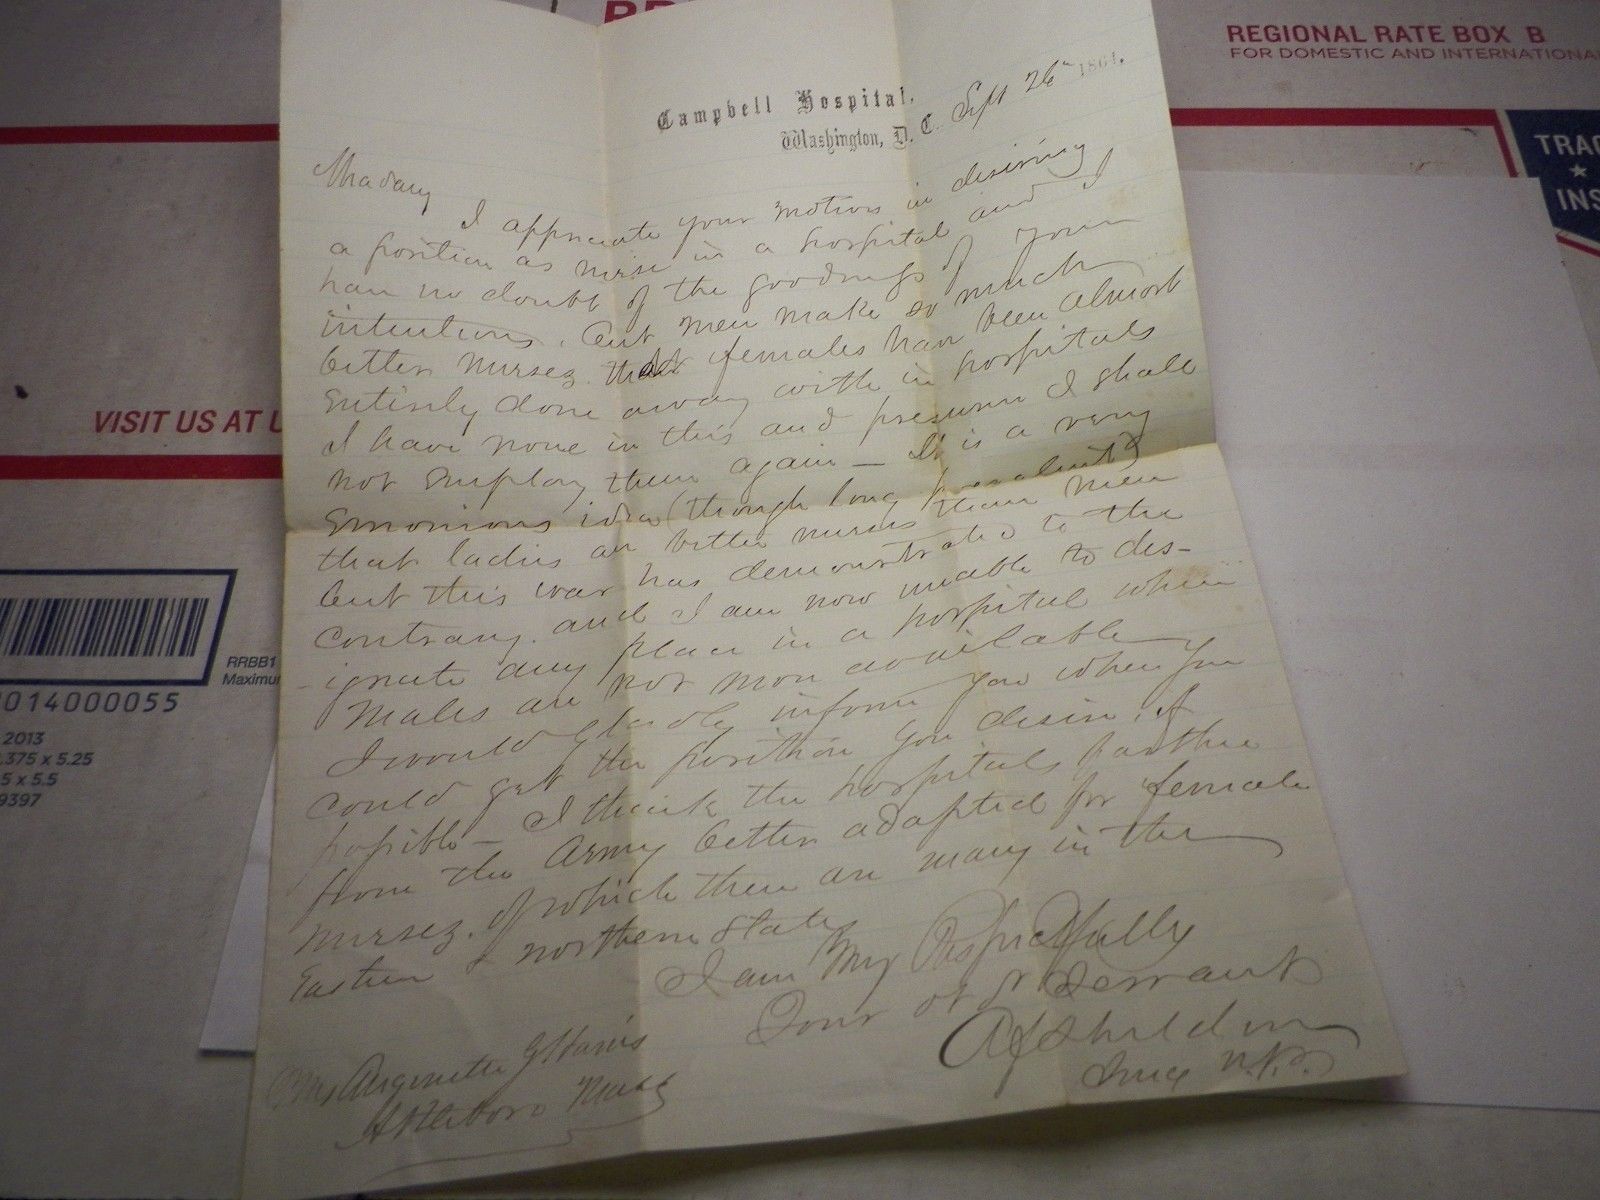 REGIONAL RATE BOX B
FOR DOMESTIC AND INTERNATIONA
TRAC
INS
VISIT US AT U
RRBB1
Maximu
014000055
2013
.375 x 5.25
5 x 5.5
9397
Campbell Hospital,
Washington, D. C. Sept 26th 1864.
Madam
I appreciate your motives in desiring
a position as nurse in a hospital and I
have no doubt of the goodness of your
intentions. But men make so much
better nurses that females have been almost
entirely done away with in hospitals
I have none in this and presume I shall
not employ them again — It is a very
erronious idea (though long prevalent)
that ladies are better nurses than men
but this war has demonstrated to the
contrary. and I am now unable to des-
ignate any place in a hospital where
males are not more available
I would gladly inform you where you
could get the position you desire, if
possible — I think the hospitals farther
from the Army better adapted for female
nurses. of which there are many in the
Eastern & northern States
I am Very Respectfully
Your obt Servant
A F Sheldon
Surg U.S.V.
Mrs Augenette G Harris
Attleboro Mass